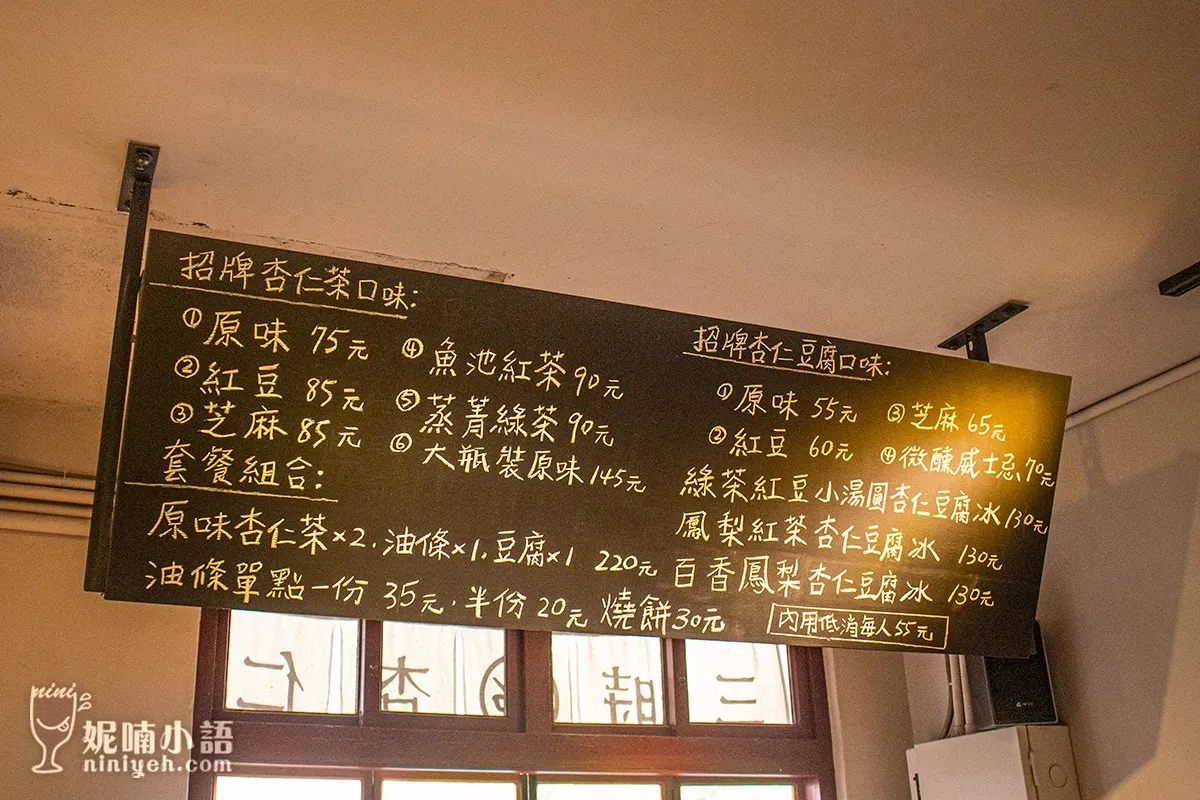 招牌杏仁茶口味:
①原味 75元
②紅豆 85元
③芝麻 85元
④魚池紅茶 90元
⑤蒸菁綠茶 90元
⑥大瓶裝原味 145元
套餐組合:
原味杏仁茶×2.油條×1.豆腐×1 220元
油條單點一份 35元.半份20元 燒餅30元
招牌杏仁豆腐口味:
①原味 55元
②紅豆 60元
③芝麻 65元
④微醺威士忌 70元
綠茶紅豆小湯圓杏仁豆腐冰 130元
鳳梨紅茶杏仁豆腐冰 130元
百香鳳梨杏仁豆腐冰 130元
內用低消每人55元
三時杏仁
nini
妮喃小語
niniyeh.com